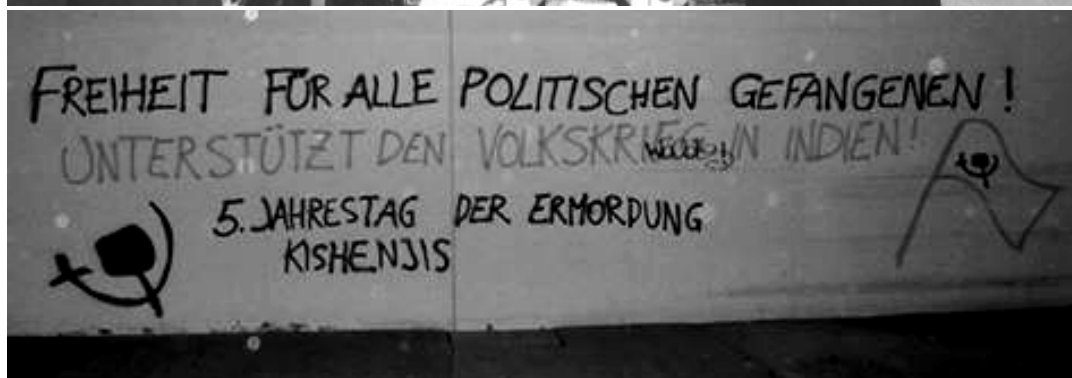 FREIHEIT FÜR ALLE POLITISCHEN GEFANGENEN!
UNTERSTÜTZT DEN VOLKSKRIEG IN INDIEN!
5. JAHRESTAG DER ERMORDUNG
KISHENJIS